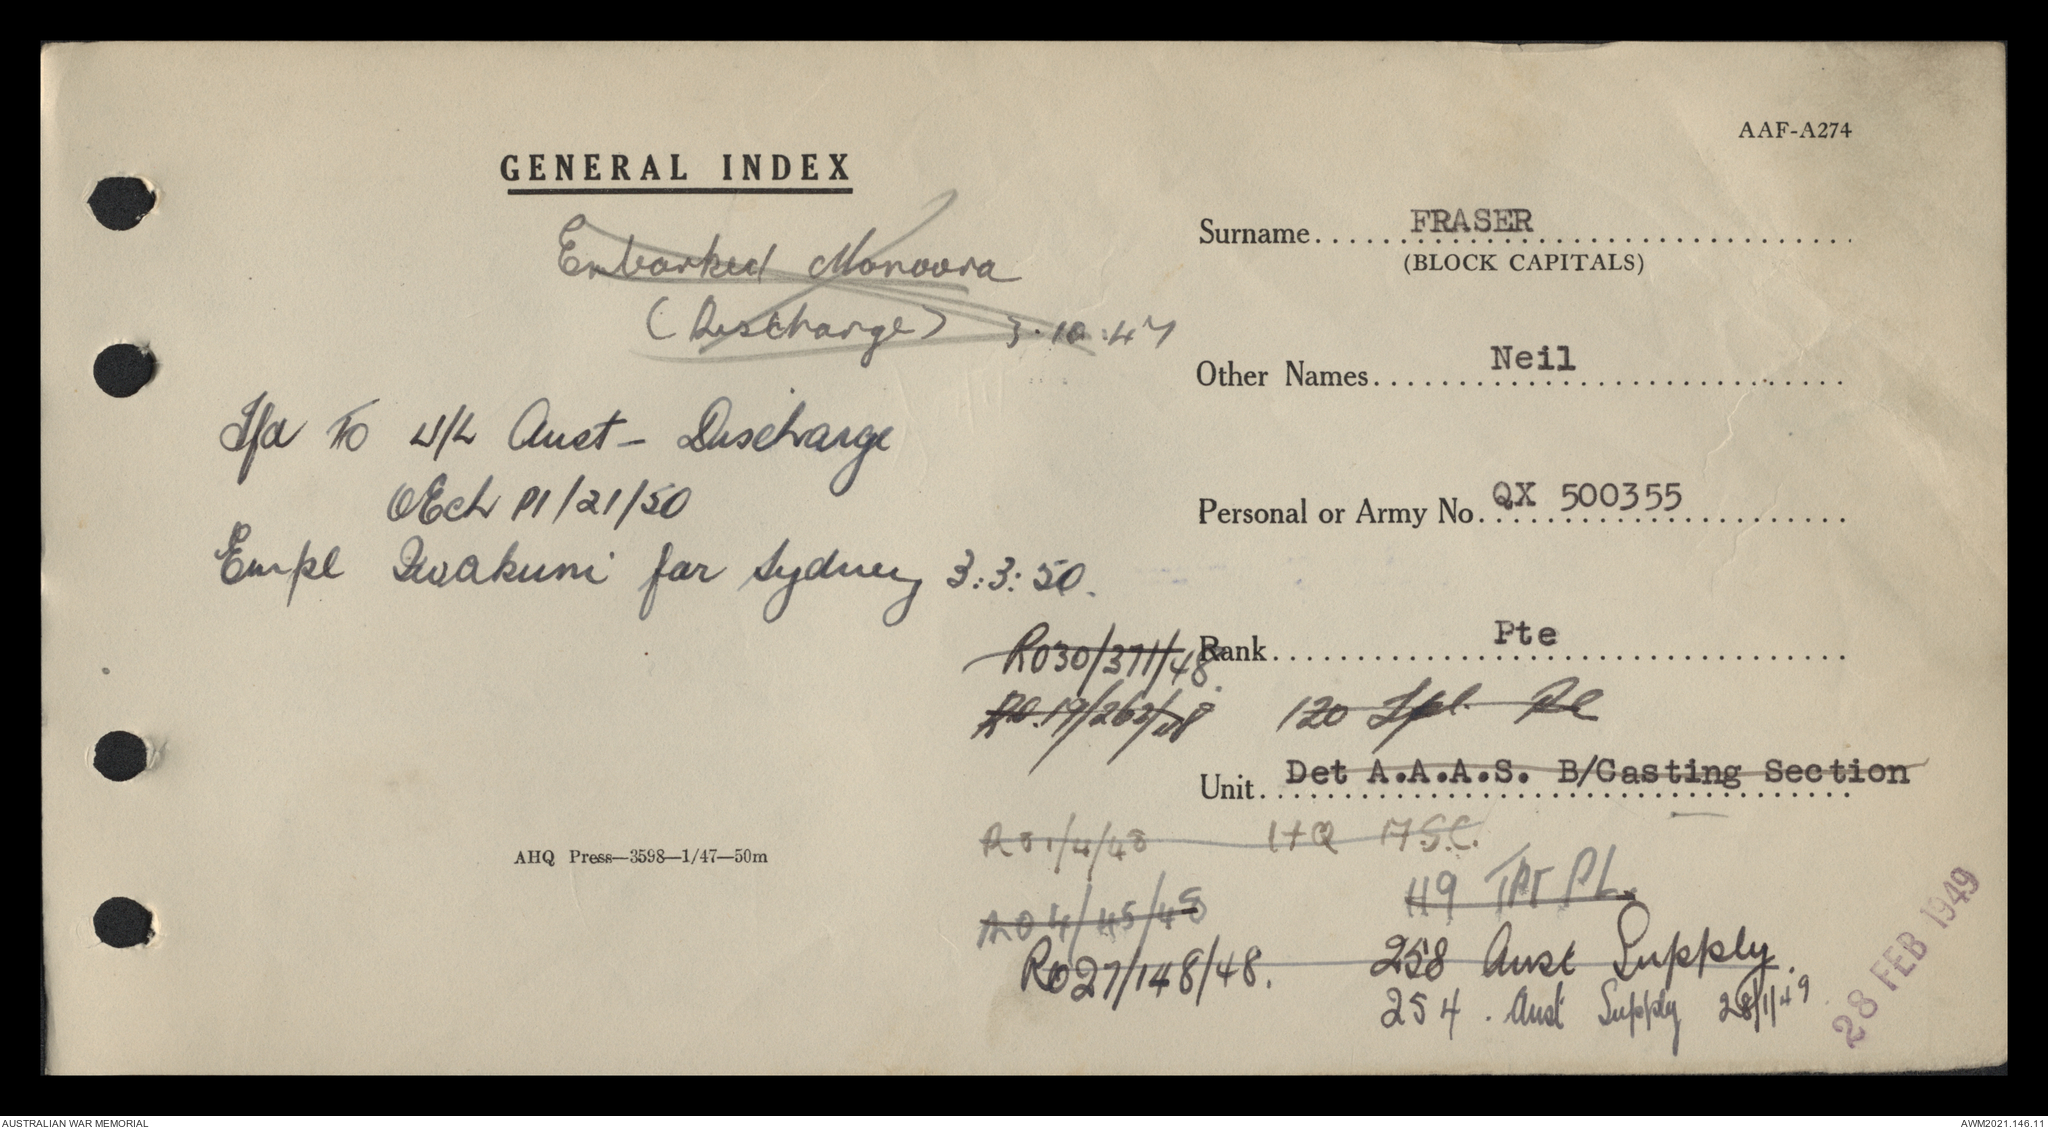 AAF-A274
GENERAL INDEX
Embarked Manoora
(Discharge) 3.10.47
Tfd to U/L Aust - Discharge
OEch P1/21/50
Empl Iwakuni for Sydney 3:3:50.
Surname FRASER
(BLOCK CAPITALS)
Other Names Neil
Personal or Army No. QX 500355
Rank Pte
RO30/371/48
RO.19/263/48 120 Spl. Pl
Unit Det A.A.A.S. B/Casting Section
RO1/4/48 HQ ASC.
RO4/45/48 119 TPT PL.
RO27/148/48. 258 Aust Supply.
254. Aust Supply 28/1/49
28 FEB 1949
AHQ Press—3598—1/47—50m
AUSTRALIAN WAR MEMORIAL
AWM2021.146.11